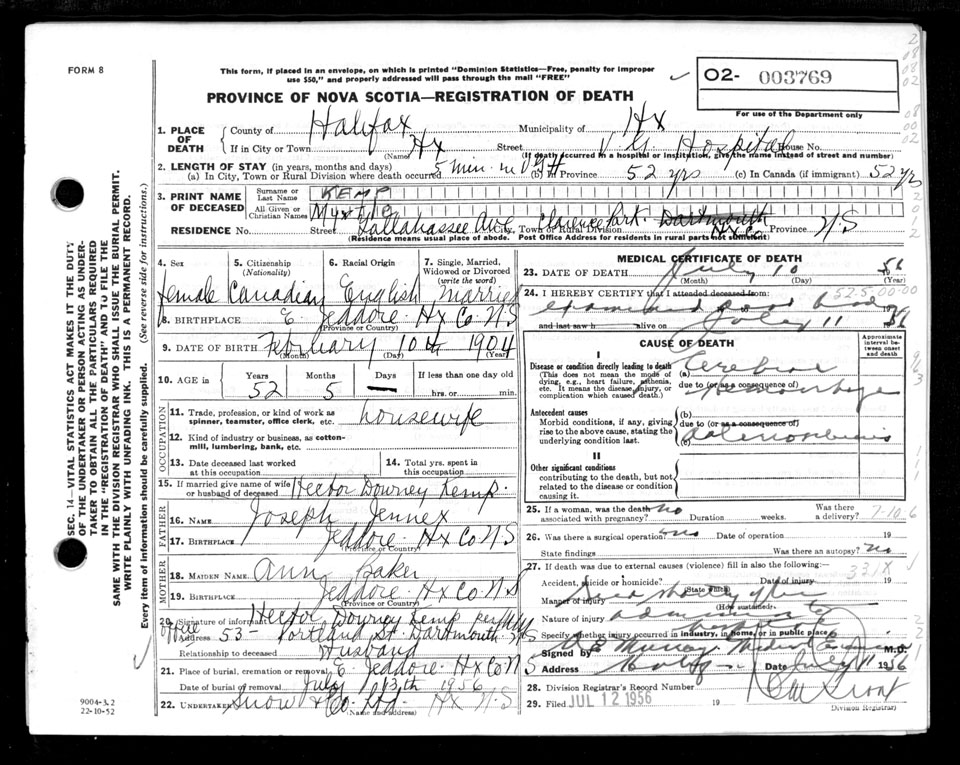 FORM 8
This form, if placed in an envelope, on which is printed "Dominion Statistics—Free, penalty for improper
use $50," and properly addressed will pass through the mail "FREE"
O2- 003769
For use of the Department only
PROVINCE OF NOVA SCOTIA—REGISTRATION OF DEATH
1. PLACE OF DEATH
County of Halifax Municipality of Hx
If in City or Town Hx Street V G Hospital House No.
(Name) (If death occurred in a hospital or institution, give the name instead of street and number)
2. LENGTH OF STAY (in years, months and days)
(a) In City, Town or Rural Division where death occurred 5 min in VGH (b) In Province 52 yrs (c) In Canada (if immigrant) 52 yrs
3. PRINT NAME OF DECEASED
Surname or Last Name KEMP
All Given or Christian Names Myrtle
RESIDENCE No. Street Tallahassee Ave. City, Town or Rural Division Clarence Park Dartmouth Hx Co Province N S
(Residence means usual place of abode. Post Office Address for residents in rural parts not sufficient)
4. Sex 5. Citizenship (Nationality) 6. Racial Origin 7. Single, Married, Widowed or Divorced (write the word)
female Canadian English married
8. BIRTHPLACE E. Jeddore Hx Co N S
(Province or Country)
9. DATE OF BIRTH February 10th 1904
(Month) (Day) (Year)
10. AGE in Years Months Days If less than one day old
52 5 — hrs. or min.
OCCUPATION
11. Trade, profession, or kind of work as spinner, teamster, office clerk, etc. housewife
12. Kind of industry or business, as cotton-mill, lumbering, bank, etc.
13. Date deceased last worked at this occupation
14. Total yrs. spent in this occupation
15. If married give name of wife or husband of deceased Hector Downey Kemp.
FATHER
16. NAME Joseph Jennex
17. BIRTHPLACE Jeddore Hx Co N S
(Province or Country)
MOTHER
18. MAIDEN NAME Ann Baker
19. BIRTHPLACE Jeddore Hx Co N S
(Province or Country)
20. Signature of informant Hector Downey Kemp
office Address 53- Portland St. Dartmouth N S
Relationship to deceased Husband
21. Place of burial, cremation or removal E. Jeddore Hx Co N S
Date of burial or removal July 13th 1956
22. UNDERTAKER Snow & Co. Ltd Hx N S
(Name and address)
MEDICAL CERTIFICATE OF DEATH
23. DATE OF DEATH July 10 56
(Month) (Day) (Year)
24. I HEREBY CERTIFY that I attended deceased from:
525-00-00
examined dead body
and last saw h alive on July 11 1956
CAUSE OF DEATH
Approximate interval between onset and death
I
Disease or condition directly leading to death
(This does not mean the mode of dying, e.g., heart failure, asthenia, etc. It means the disease, injury, or complication which caused death.)
(a) Cerebral
due to (or as a consequence of) Hemorrhage
Antecedent causes
Morbid conditions, if any, giving rise to the above cause, stating the underlying condition last.
(b)
due to (or as a consequence of)
(c)
II
Other significant conditions
contributing to the death, but not related to the disease or condition causing it.
25. If a woman, was the death associated with pregnancy? no Duration weeks. Was there a delivery? 7-10-6
26. Was there a surgical operation? no Date of operation 19
State findings Was there an autopsy? no
27. If death was due to external causes (violence) fill in also the following:
331X
Accident, suicide or homicide? (State which) Date of injury 19
Manner of injury Died shortly after
(How sustained)
Nature of injury
Specify whether injury occurred in industry, in home, or in public place
Signed by Murray Medical Examiner M.D.
Address Halifax Date July 11 1956
28. Division Registrar's Record Number
29. Filed JUL 12 1956 19
Division Registrar
9004-3.2
22-10-52
SEC. 14—VITAL STATISTICS ACT MAKES IT THE DUTY
OF THE UNDERTAKER OR PERSON ACTING AS UNDER-
TAKER TO OBTAIN ALL THE PARTICULARS REQUIRED
IN THE "REGISTRATION OF DEATH" AND TO FILE THE
SAME WITH THE DIVISION REGISTRAR WHO SHALL ISSUE THE BURIAL PERMIT.
WRITE PLAINLY WITH UNFADING INK. THIS IS A PERMANENT RECORD.
Every item of information should be carefully supplied. (See reverse side for instructions.)